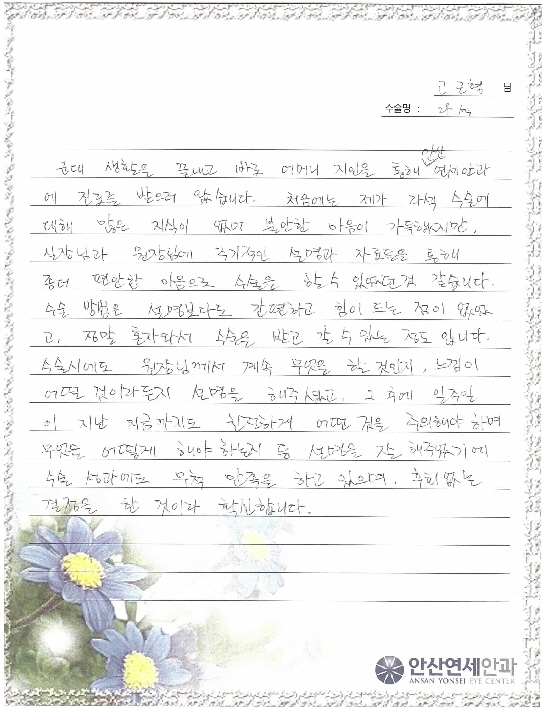 고근형 님
수술명 : 라섹
군대 생활을 끝내고 바로 어머니 지인을 통해 안산 연세안과
에 진료를 받으러 왔습니다. 처음에는 제가 라섹 수술에
대해 많은 지식이 없어 불안한 마음이 가득했지만,
실장님과 원장님에 적극적인 설명과 자료들을 통해
좀더 편안한 마음으로 수술을 할 수 있었던것 같습니다.
수술 방법은 설명보다도 간편하고 힘이 드는 점이 없었
고, 정말 혼자와서 수술을 받고 갈 수 있는 정도 입니다.
수술시에도 원장님께서 계속 무엇을 할 것인지, 느낌이
어떤 것이라든지 설명을 해주셨고, 그 후에 일주일
이 지난 지금까지도 친절하게 어떤 것을 주의해야 하며
무엇을 어떻게 해야 하는지 등 설명을 잘 해주었기에
수술 성과에도 무척 만족을 하고 있으며, 후회 없는
결정을 한 것이라 확신합니다.
안산연세안과
ANSAN YONSEI EYE CENTER